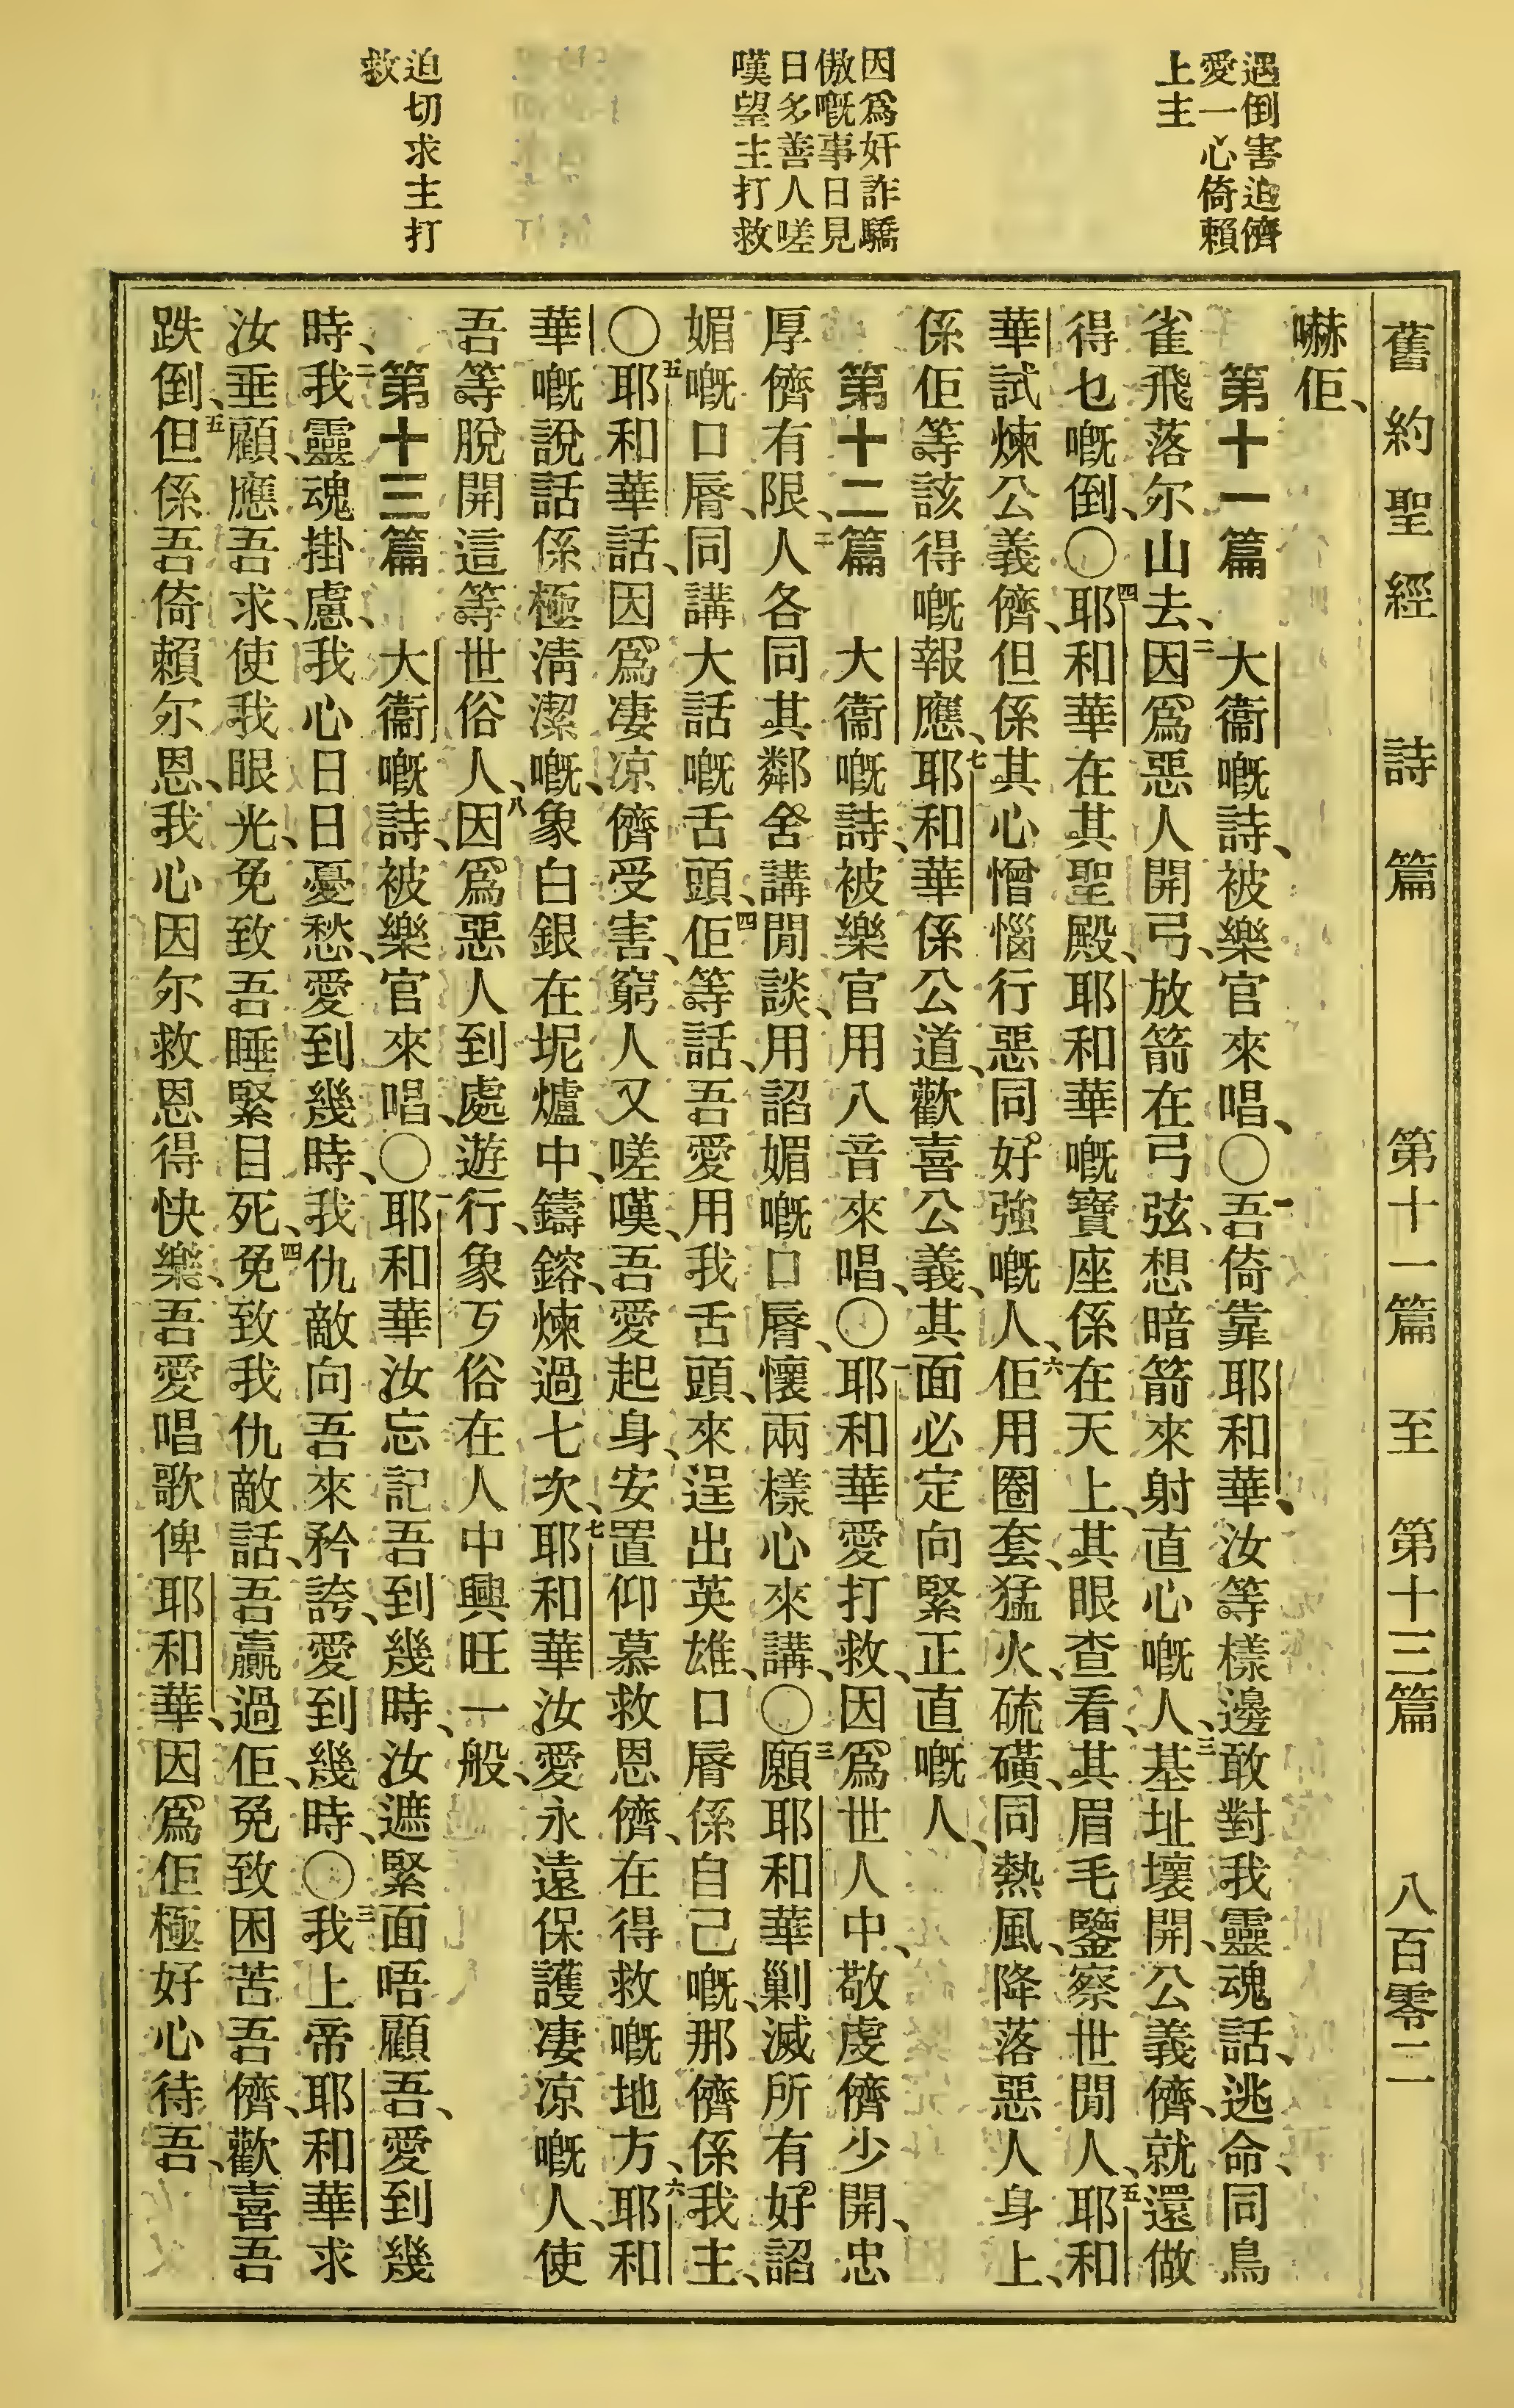 舊約聖經 詩篇 第十一篇 至 第十三篇 八百零二
遇倒害迫儕
愛一心倚賴
上主
因爲奸詐驕
傲嘅事日見
日多善人嗟
嘆望主打救
迫切求主打
救
嚇佢、
第十一篇 大衞嘅詩、被樂官來唱、〇一吾倚靠耶和華、汝等樣邊敢對我靈魂話、逃命、同鳥
雀飛落尔山去、二因爲惡人開弓、放箭在弓弦、想暗箭來射直心嘅人、三基址壞開、公義儕、就還做
得乜嘅倒、〇四耶和華在其聖殿、耶和華嘅寶座係在天上、其眼查看、其眉毛鑒察世閒人、五耶和
華試煉公義儕、但係其心憎惱行惡同好強嘅人、六佢用圈套、猛火、硫磺、同熱風、降落惡人身上、
係佢等該得嘅報應、七耶和華係公道、歡喜公義、其面必定向緊正直嘅人、
第十二篇 大衞嘅詩、被樂官用八音來唱、〇一耶和華愛打救、因爲世人中、敬虔儕少開、忠
厚儕有限、二人各同其鄰舍講閒談、用諂媚嘅口脣、懷兩樣心來講、〇三願耶和華剿滅所有好諂
媚嘅口脣、同講大話嘅舌頭、四佢等話、吾愛用我舌頭、來逞出英雄、口脣係自己嘅、那儕係我主、
〇五耶和華話、因爲凄凉儕受害、窮人又嗟嘆、吾愛起身、安置仰慕救恩儕、在得救嘅地方、六耶和
華嘅說話係極淸潔嘅、象白銀在坭爐中、鑄鎔、煉過七次、七耶和華汝愛永遠保護凄凉嘅人、使
吾等脫開這等世俗人、八因爲惡人到處遊行、象歹俗在人中興旺一般、
第十三篇 大衞嘅詩、被樂官來唱、〇一耶和華汝忘記吾到幾時、汝遮緊面唔顧吾、愛到幾
時、二我靈魂掛慮、我心日日憂愁、愛到幾時、我仇敵向吾來矜誇、愛到幾時、〇三我上帝耶和華求
汝垂顧、應吾求、使我眼光、免致吾睡緊目死、四免致我仇敵話、吾贏過佢、免致困苦吾儕、歡喜吾
跌倒、五但係吾倚賴尔恩、我心因尔救恩得快樂、吾愛唱歌俾耶和華、因爲佢極好心待吾、